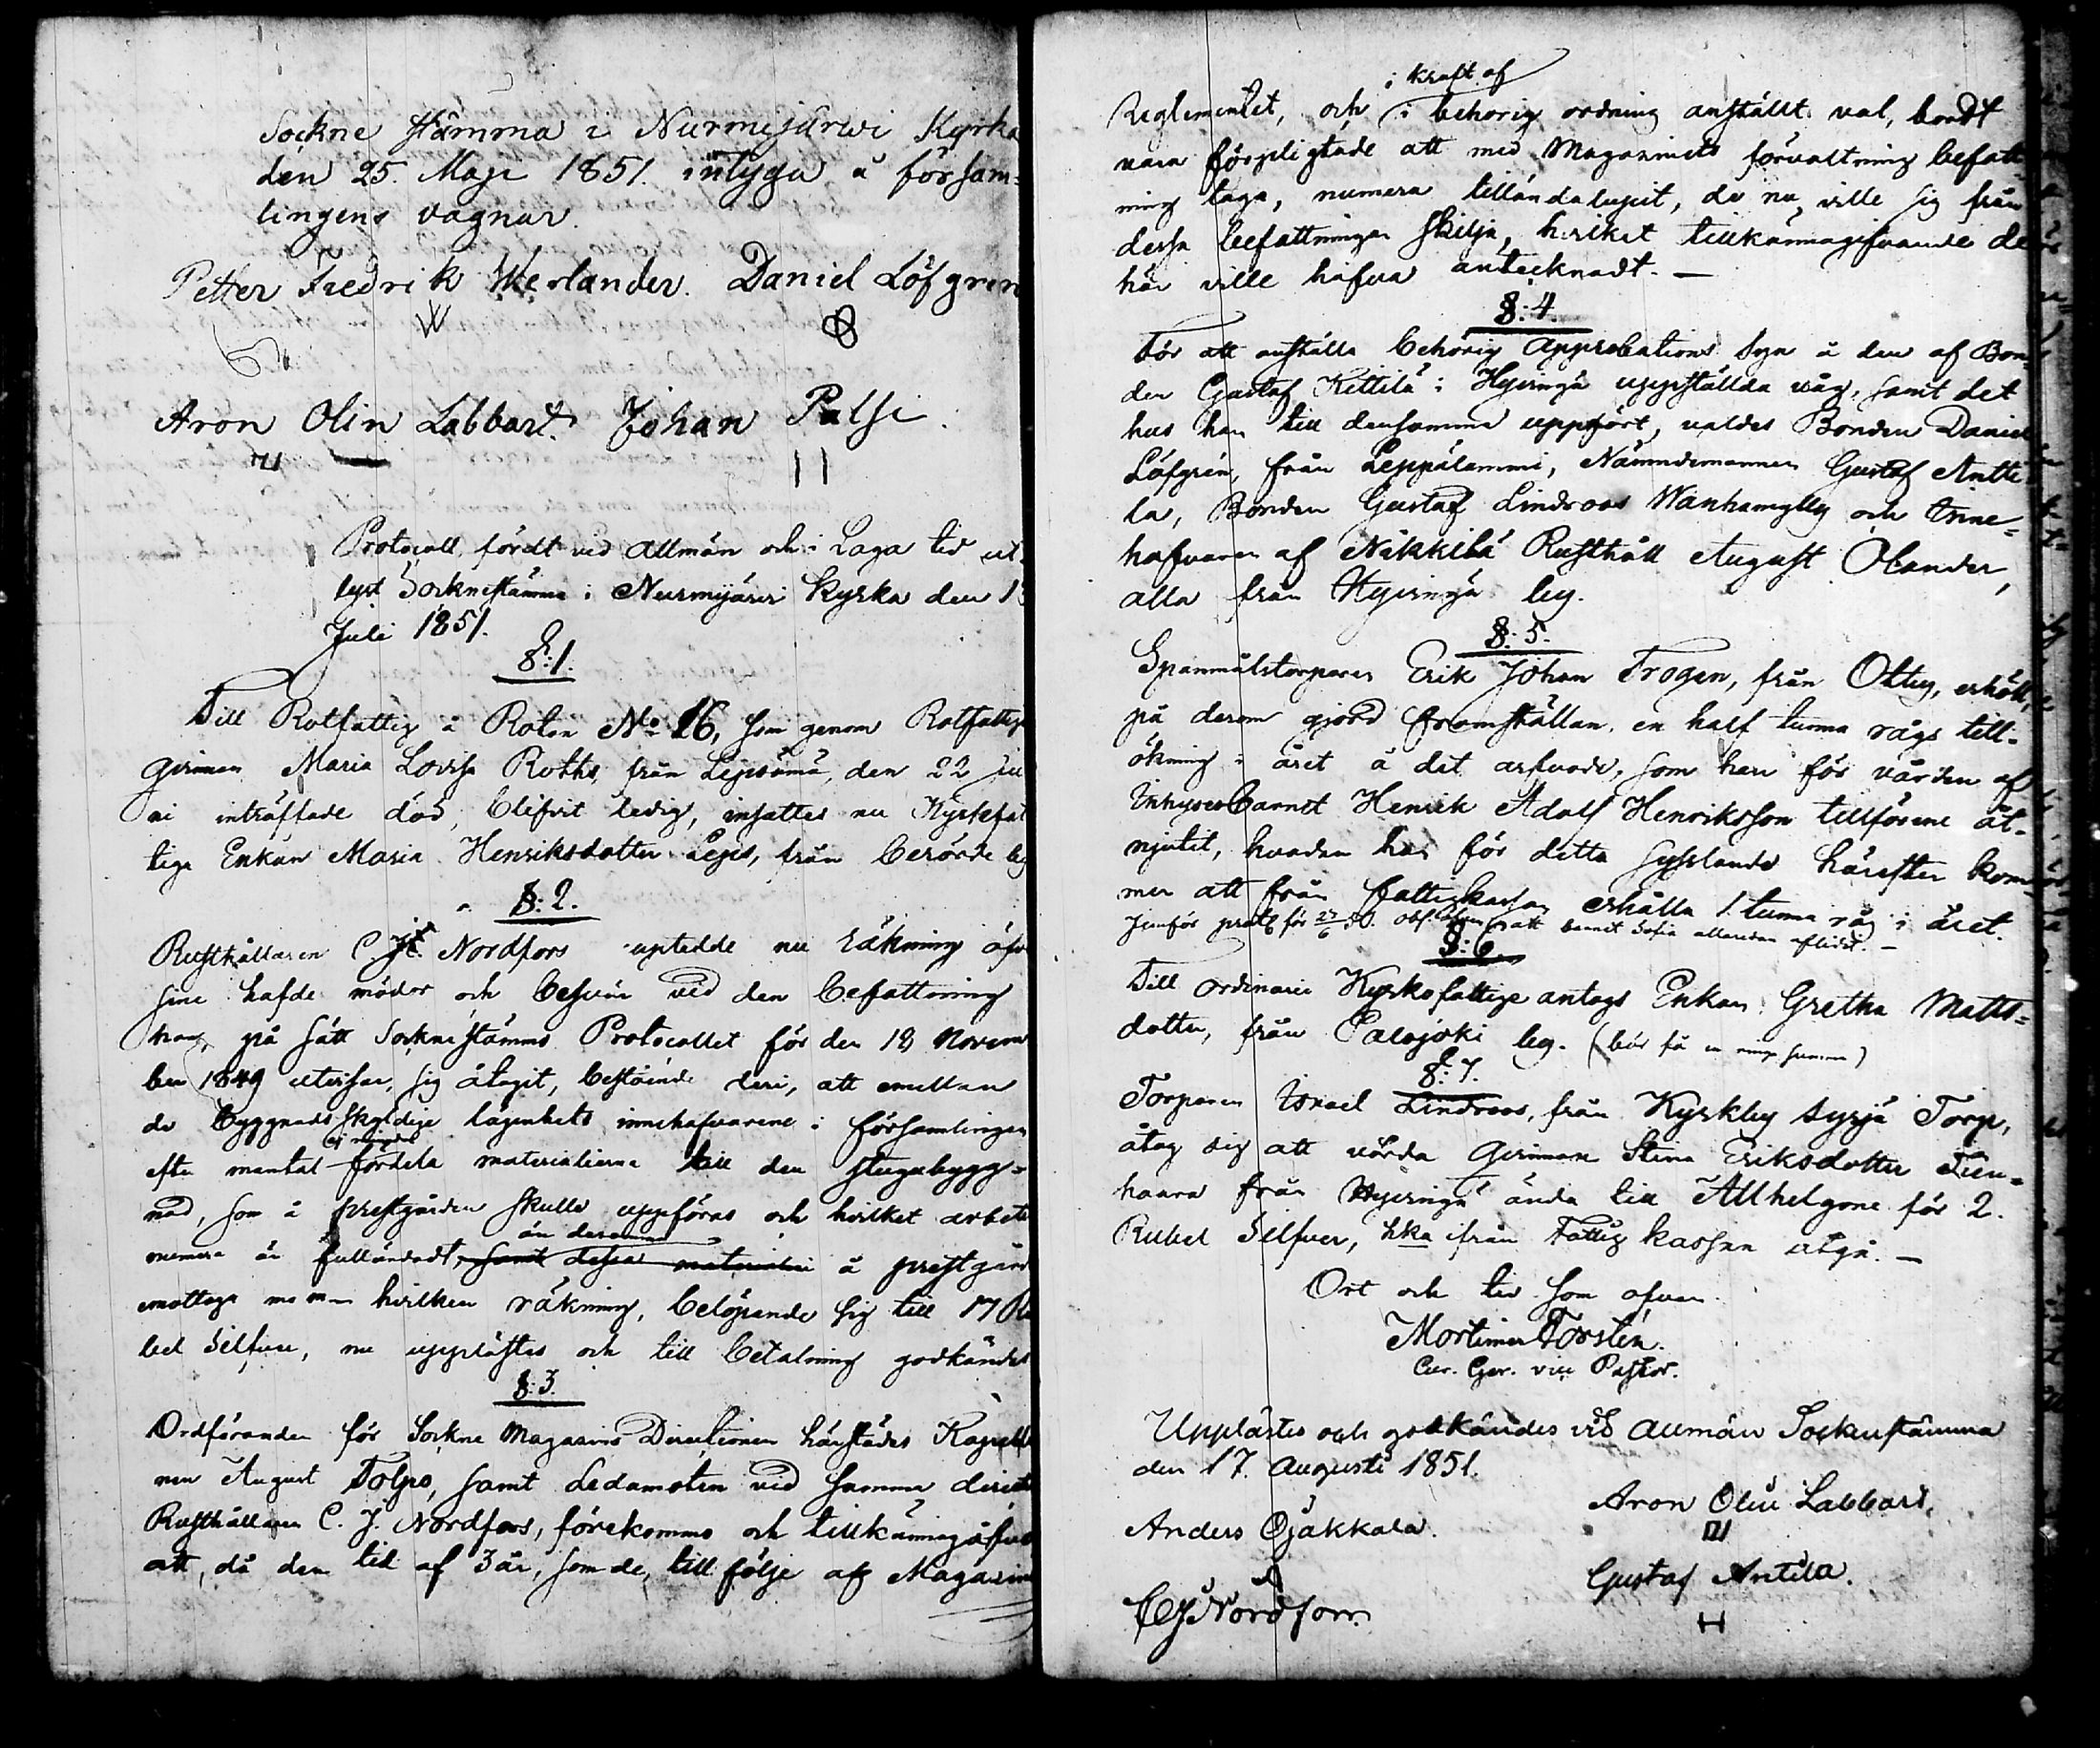 Sockne stämma i Nurmijärwi Kyrka
den 25. Maji 1851. intyga å försam-
lingens vägnar.
Petter Fredrik Werlander. Daniel Löfgren
Aron Olin Labbart. Johan Palsi.
Protocoll, fördt vid allmän och i Laga tid ut-
lyst Socknestämma i Nurmijärvi Kyrka den 13
Juli 1851.
§:1.
Till Rotfattig å Roten No 16, som genom Rotfattig
qvinnan Maria Lovisa Roths, från Lepsämä, den 22 Ju
ni inträffade död, blifvit ledig, insattes nu Kyrkofat
tige Enkan Maria Henriksdotter Leps, från berörde by
§:2.
Rusthållaren C. J. Nordfors uptedde nu räkning öfver
sine hafde mödor och besvär vid den befattning
han, på sätt Socknestämmo Protocollet för den 18 Novem
ber 1849 utvisar, sig åtagit, bestående deri, att emellan
de byggnadsskyldige lägenhets innehafvarene i församlingen
efter mantal fördela materialierna till den stugubygg-
nad, som å prestgården skulle uppföras och hvilket arbete
numera är fulländadt, samt dessa materialier å prestgård
emottaga hvilken räkning, belöpande sig till 17 Ru
bel Silfver, nu upplästes och till betalning godkändes
§:3.
Ordföranden för Sockne Magasins Directionen härstädes Kapella
nen August Tolpo, samt Ledamoten vid samma direction
Rusthållaren C. J. Nordfors, förekommo och tillkännagåfvo
att, då den tid af 3 år, som de, till följe af Magasins
i kraft af
Reglementet, och i behörig ordning anställt val, bordt
vara förpligtade att med Magasinets förvaltning befatt-
ning taga, numera tilländalupit, de nu ville sig från
dessa befattningar skilja, hvilket tillkännagifvande de
här ville hafva antecknadt. —
§:4.
För att anställa behörig Approbations Syn å den af Bon-
den Gustaf Kittilä i Hyvinge uppställda väg, samt det
hus han till densamma uppfört, valdes Bonden Daniel
Löfgren, från Leppälammi, Nämndemannen Gustaf Antti-
la, Bonden Gustaf Lindroos Wanhamylly och Inne-
hafvaren af Nikkilä Rusthåll August Olander,
alla från Hyvinge by.
§:5.
Spanmålstorparen Erik Johan Trogen, från Ottey, erhöll,
på derom gjord framställan, en half tunna rågs till-
ökning i året å det arfvode, som han för vården af
Inhyses barnet Henrik Adolf Henriksson tillförene åt-
njutit, hvadan han för detta sysslande härefter kom-
mer att från fattigkassan erhålla 1. tunna råg i året.
Jemför prot. för 27/6 50. att barnet Sofia allaredan aflidit. —
§:6.
Till ordinarie Kyrkofattige antogs Enkan Gretha Matts-
dotter, från Palojoki by.
§:7.
Torparen Israel Lindroos, från Kyrkby Syrjä Torp,
åtog sig att vårda qvinnan Stina Eriksdotter Tien-
haara från Hyvinge ända till Allhelgone för 2.
Rubel Silfver, hka ifrån Fattig kassan utgå. —
Ort och tid som ofvan.
Mortimer Forstén.
Cur. Ger. vice Pastor.
Upplästes och godkändes vid allmän Sockenstämma
den 17. Augusti 1851.
Anders Ojakkala.
Aron Olin Labbart.
CJNordfors.
Gustaf Antila.